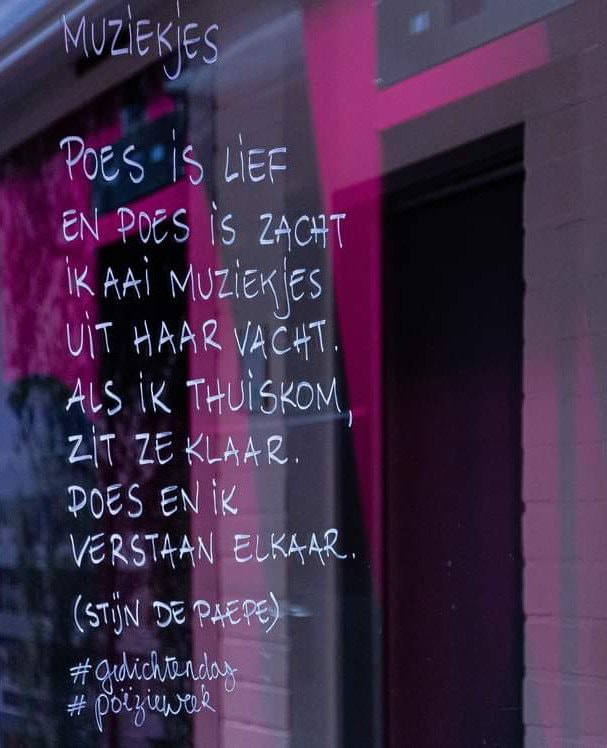 MUZIEKJES
POES IS LIEF
EN POES IS ZACHT
IK AAI MUZIEKJES
UIT HAAR VACHT.
ALS IK THUISKOM,
ZIT ZE KLAAR.
POES EN IK
VERSTAAN ELKAAR.
(STIJN DE PAEPE)
#gedichtendag
#poëzieweek